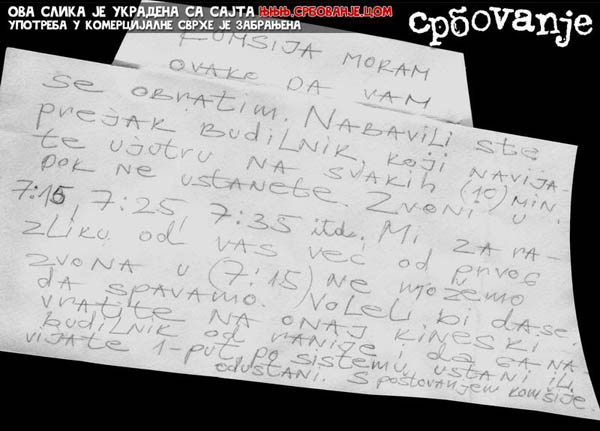 ОВА СЛИКА ЈЕ УКРАДЕНА СА САЈТА ЊЊЊ.СРБОВАЊЕ.ЦОМ
УПОТРЕБА У КОМЕРЦИЈАЛНЕ СВРХЕ ЈЕ ЗАБРАЊЕНА
србоvanje
KOMŠIJA MORAM
OVAKO DA VAM
SE OBRATIM. NABAVILI STE
PREJAK BUDILNIK, KOJI NAVIJA-
TE UJUTRU NA SVAKIH (10) MIN.
DOK NE USTANETE. ZVONI U
7:15, 7:25, 7:35 itd. MI, ZA RA-
ZLIKU OD VAS VEĆ OD PRVOG
ZVONA U (7:15) NE MOŽEMO
DA SPAVAMO. VOLELI BI DA SE
VRATITE NA ONAJ KINESKI
BUDILNIK OD RANIJE I DA GA NA-
VIJATE 1-PUT, PO SISTEMU USTANI ILI
ODUSTANI. S POŠTOVANJEM KOMŠIJE.